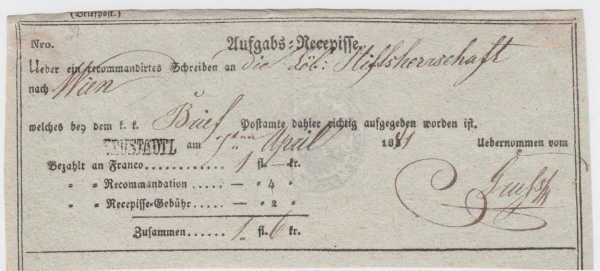 (Briefpost.)
Nro. Aufgabs-Recepisse.
Ueber ein recommandirtes Schreiben an die löb: Stiftsherrschaft
nach Wien
welches bey dem k. k. Brief Postamte dahier richtig aufgegeben worden ist.
am April 1841 Uebernommen vom
Bezahlt an Franco...... 1 fl. — kr.
„ „ Recommandation .... — „ 4 „
„ „ Recepisse-Gebühr... — „ 2 „
Zusammen...... 1 „ fl. 6 kr.